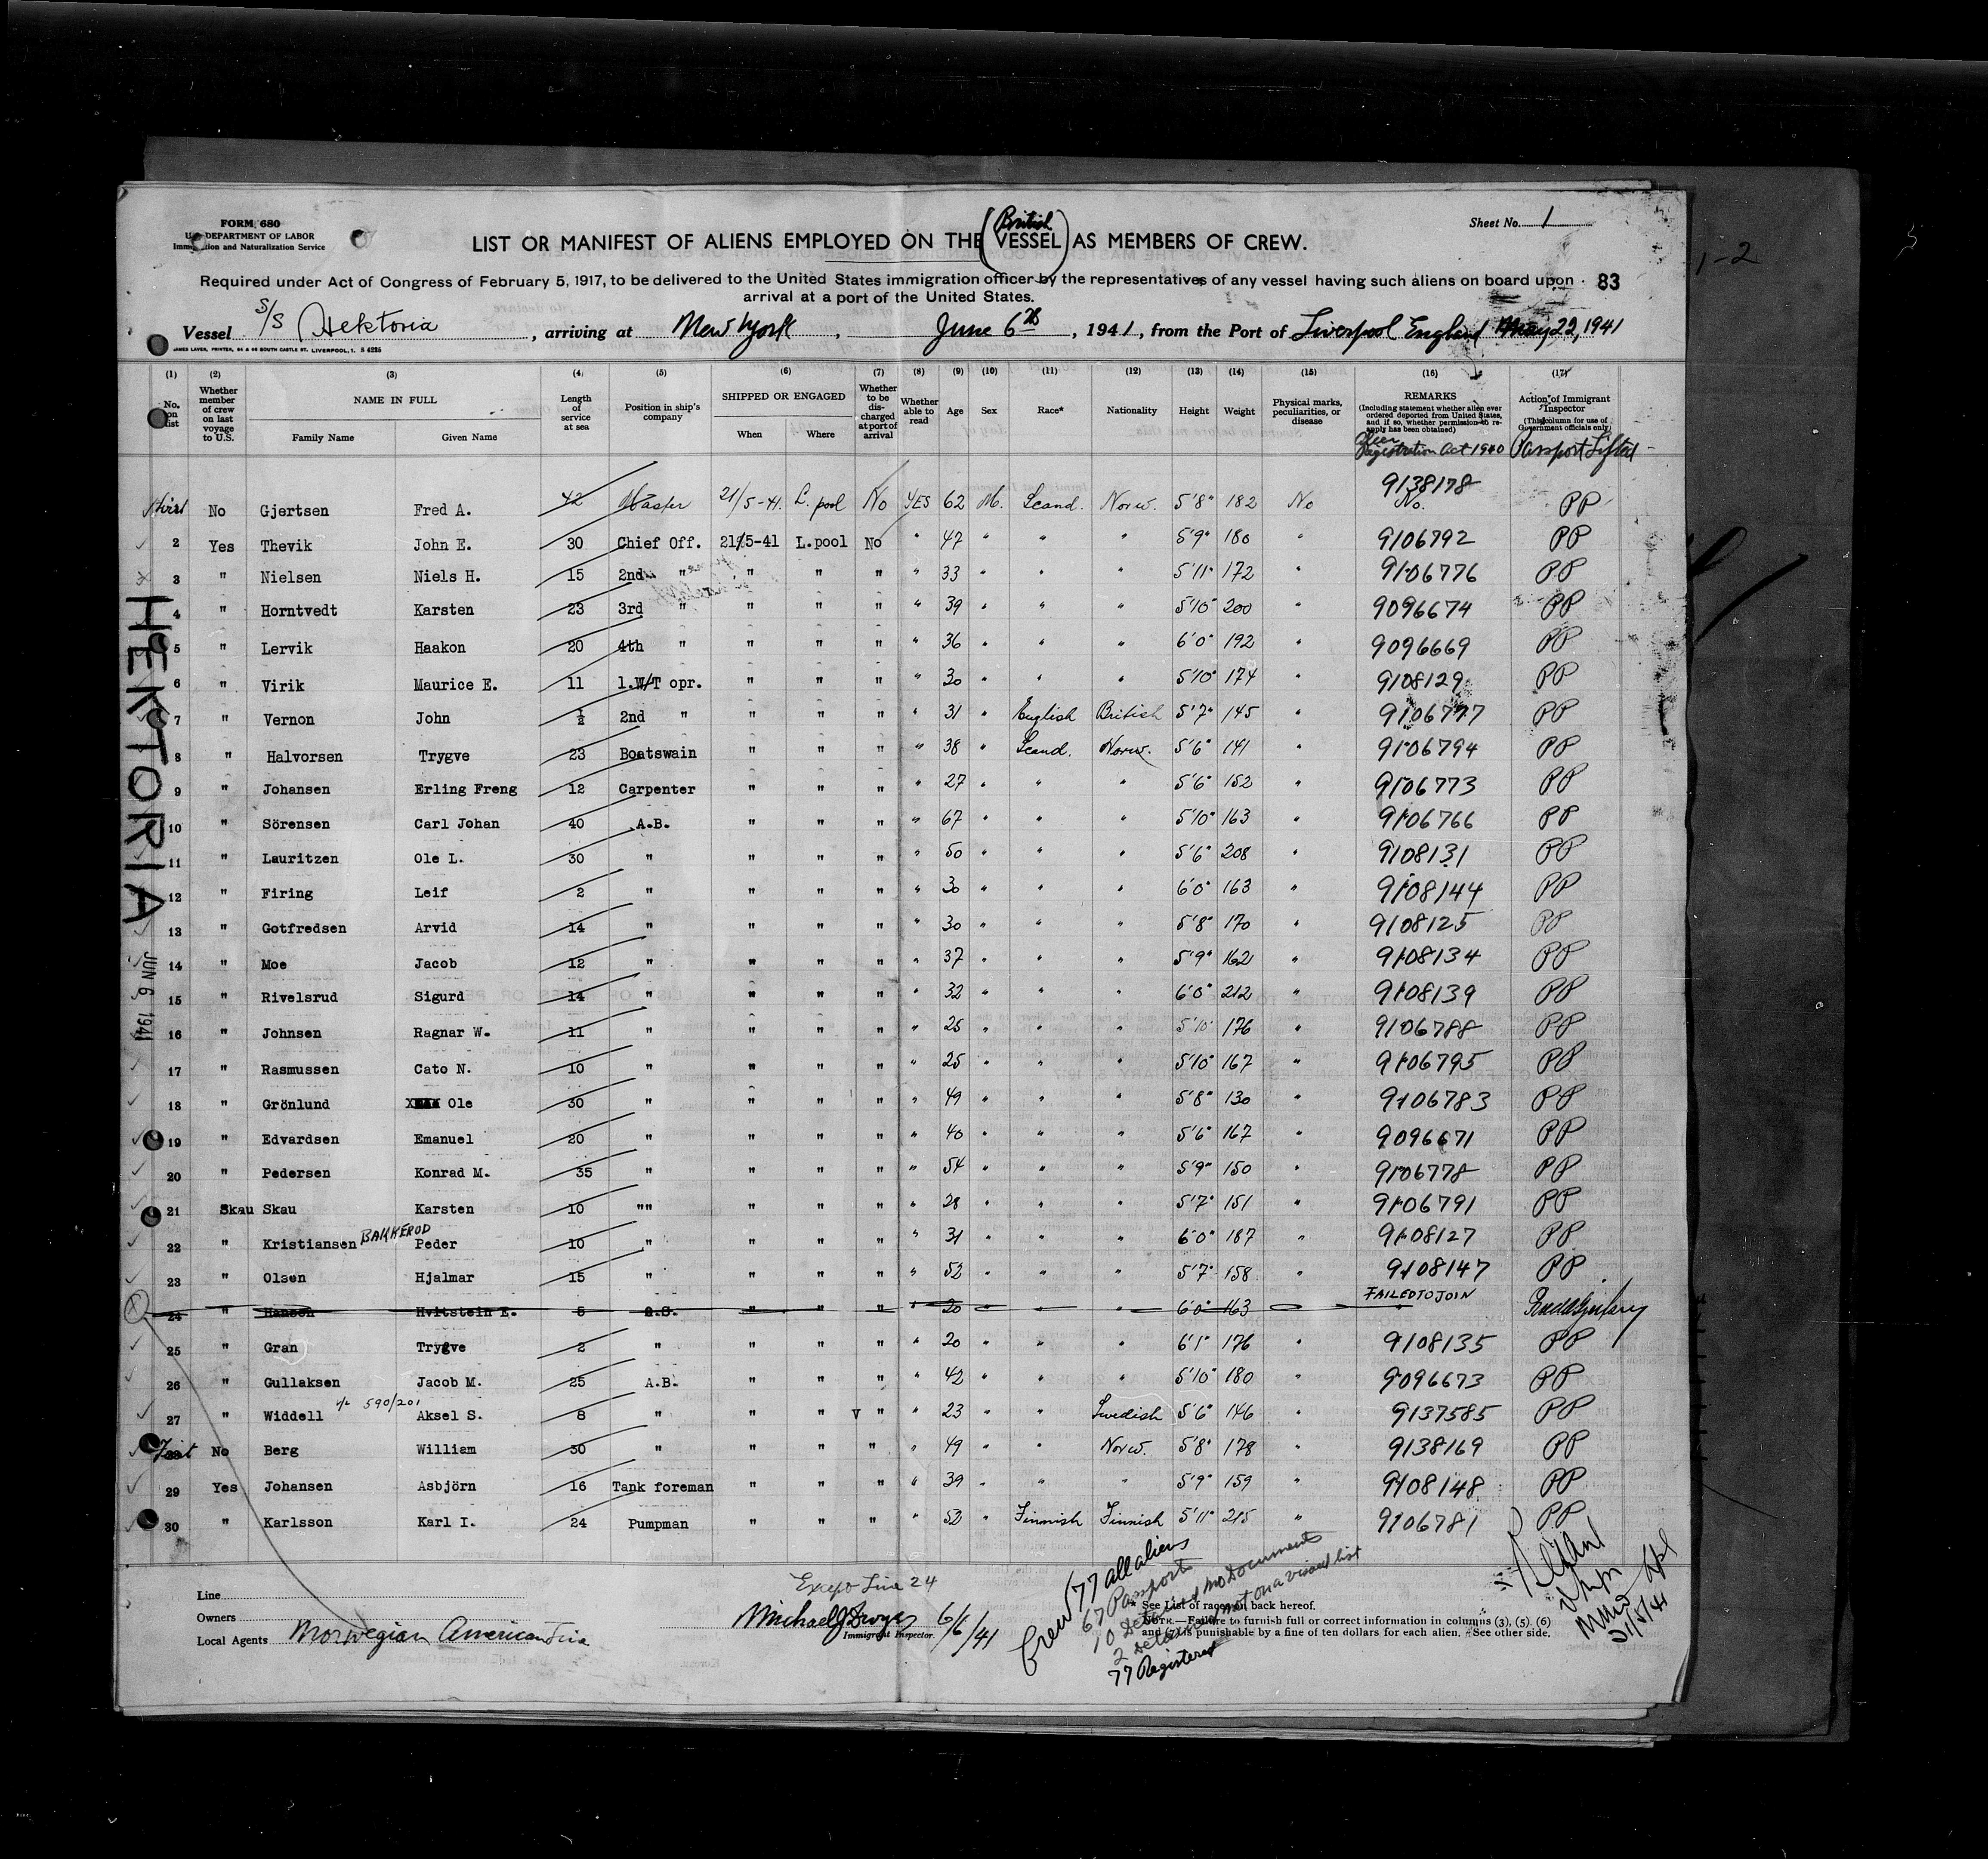 FORM 680
U.S. DEPARTMENT OF LABOR
Immigration and Naturalization Service
LIST OR MANIFEST OF ALIENS EMPLOYED ON THE (British VESSEL) AS MEMBERS OF CREW.
Sheet No. 1
Required under Act of Congress of February 5, 1917, to be delivered to the United States immigration officer by the representatives of any vessel having such aliens on board upon
arrival at a port of the United States.
83
1-2
Vessel S/S Hektoria, arriving at New York, June 6th, 1941, from the Port of Liverpool England May 22, 1941
JAMES LAVER, PRINTER, 64 & 66 SOUTH CASTLE ST. LIVERPOOL, 1. S 6225
(1) (2) (3) (4) (5) (6) (7) (8) (9) (10) (11) (12) (13) (14) (15) (16) (17)
No. on list Whether member of crew on last voyage to U.S. NAME IN FULL Family Name Given Name Length of service at sea Position in ship's company SHIPPED OR ENGAGED When Where Whether to be discharged at port of arrival Whether able to read Age Sex Race* Nationality Height Weight Physical marks, peculiarities, or disease REMARKS (Including statement whether alien ever ordered deported from United States, and if so, whether permission to re-apply has been obtained) Action of Immigrant Inspector (This column for use of Government officials only)
Alien Registration Act 1940 Passport Lifted
First No Gjertsen Fred A. 42 Master 21/5-41. L.pool No YES 62 M. Scand. Norw. 5'8" 182 No 9138178 No. PP
2 Yes Thevik John E. 30 Chief Off. 21/5-41 L.pool No " 47 " " " 5'9" 180 " 9106792 PP
3 " Nielsen Niels H. 15 2nd " " " " " 33 " " " 5'11" 172 " 9106776 PP
4 " Horntvedt Karsten 23 3rd " " " " " 39 " " " 5'10" 200 " 9096674 PP
5 " Lervik Haakon 20 4th " " " " " 36 " " " 6'0" 192 " 9096669 PP
6 " Virik Maurice E. 11 1.W/T opr. " " " " 30 " " " 5'10" 174 " 9108129 PP
7 " Vernon John ½ 2nd " " " " " 31 " English British 5'7" 145 " 9106777 PP
8 " Halvorsen Trygve 23 Boatswain " " " " 38 " Scand. Norw. 5'6" 141 " 9106794 PP
9 " Johansen Erling Freng 12 Carpenter " " " " 27 " " " 5'6" 152 " 9106773 PP
10 " Sörensen Carl Johan 40 A.B. " " " " 67 " " " 5'10" 163 " 9106766 PP
11 " Lauritzen Ole L. 30 " " " " " 50 " " " 5'6" 208 " 9108131 PP
12 " Firing Leif 2 " " " " " 30 " " " 6'0" 163 " 9108144 PP
13 " Gotfredsen Arvid 14 " " " " " 30 " " " 5'8" 170 " 9108125 PP
14 " Moe Jacob 12 " " " " " 37 " " " 5'9" 162 " 9108134 PP
15 " Rivelsrud Sigurd 14 " " " " " 32 " " " 6'0" 212 " 9108139 PP
16 " Johnsen Ragnar W. 11 " " " " " 25 " " " 5'10" 176 " 9106788 PP
17 " Rasmussen Cato N. 10 " " " " " 25 " " " 5'10" 167 " 9106795 PP
18 " Grönlund Ole 30 " " " " " 49 " " " 5'8" 130 " 9106783 PP
19 " Edvardsen Emanuel 20 " " " " " 40 " " " 5'6" 167 " 9096671 PP
20 " Pedersen Konrad M. 35 " " " " " 54 " " " 5'9" 150 " 9106778 PP
21 Skau Skau Karsten 10 "" " " " " 28 " " " 5'7" 151 " 9106791 PP
22 " Kristiansen BAKKEROD Peder 10 " " " " " 31 " " " 6'0" 187 " 9108127 PP
23 " Olsen Hjalmar 15 " " " " " 52 " " " 5'7" 158 " 9108147 PP
24 " Hansen Hvitstein E. 5 O.S. " " " " 20 " " " 6'0" 163 FAILED TO JOIN
25 " Gran Trygve 2 " " " " " 20 " " " 6'1" 176 " 9108135 PP
26 " Gullaksen Jacob M. 25 A.B. " " " " 42 " " " 5'10" 180 " 9096673 PP
27 " Widdell 590/201 Aksel S. 8 " " " V " " 23 " " Swedish 5'6" 146 " 9137585 PP
28 First No Berg William 30 " " " " " 49 " " Norw. 5'8" 178 " 9138169 PP
29 Yes Johansen Asbjörn 16 Tank foreman " " " " 39 " " " 5'9" 159 " 9108148 PP
30 " Karlsson Karl I. 24 Pumpman " " " " 53 " Finnish Finnish 5'11" 215 " 9106781 PP
HEKTORIA
JUN 6 1941
Line
Owners
Local Agents Norwegian American Line
Except Line 24
Michael J Dwyer 6/6/41
Immigrant Inspector.
Crew (77 all aliens
67 Passports
10 Detained no Documents
2 Detained not on a visaed list
77 Registered
* See List of races on back hereof.
NOTE.—Failure to furnish full or correct information in columns (3), (5), (6)
and (7) is punishable by a fine of ten dollars for each alien. See other side.
21/5/41